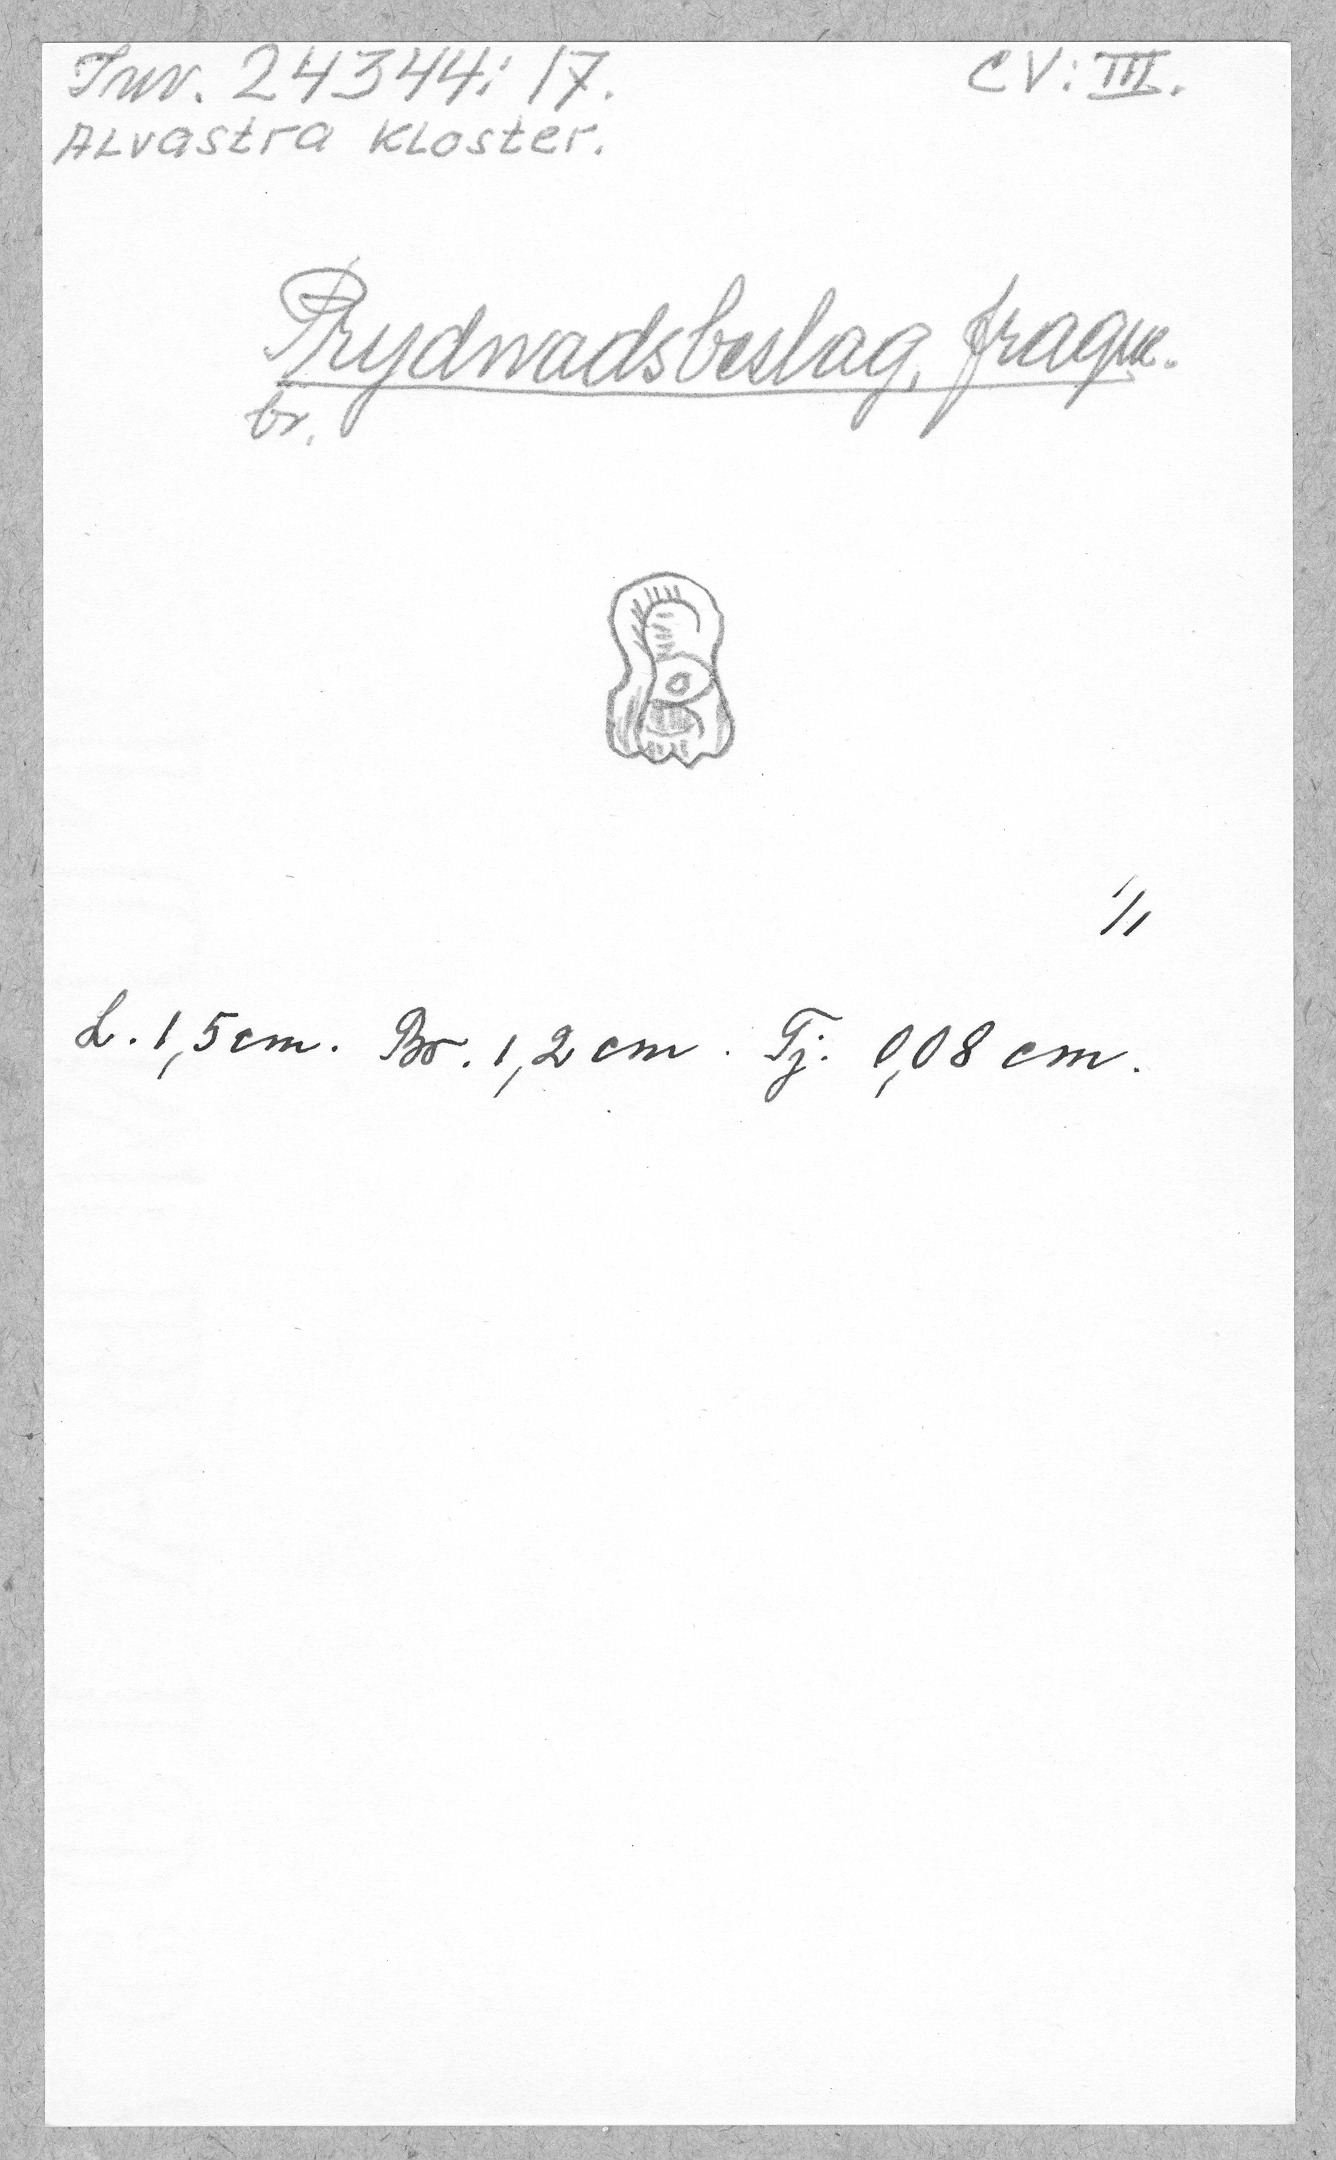 Inv. 24344: 17. CV: III.
Alvastra Kloster.
Prydnadsbeslag, fragm.
br.
1/1
L. 1,5 cm. Br. 1,2 cm. Tj. 0,08 cm.